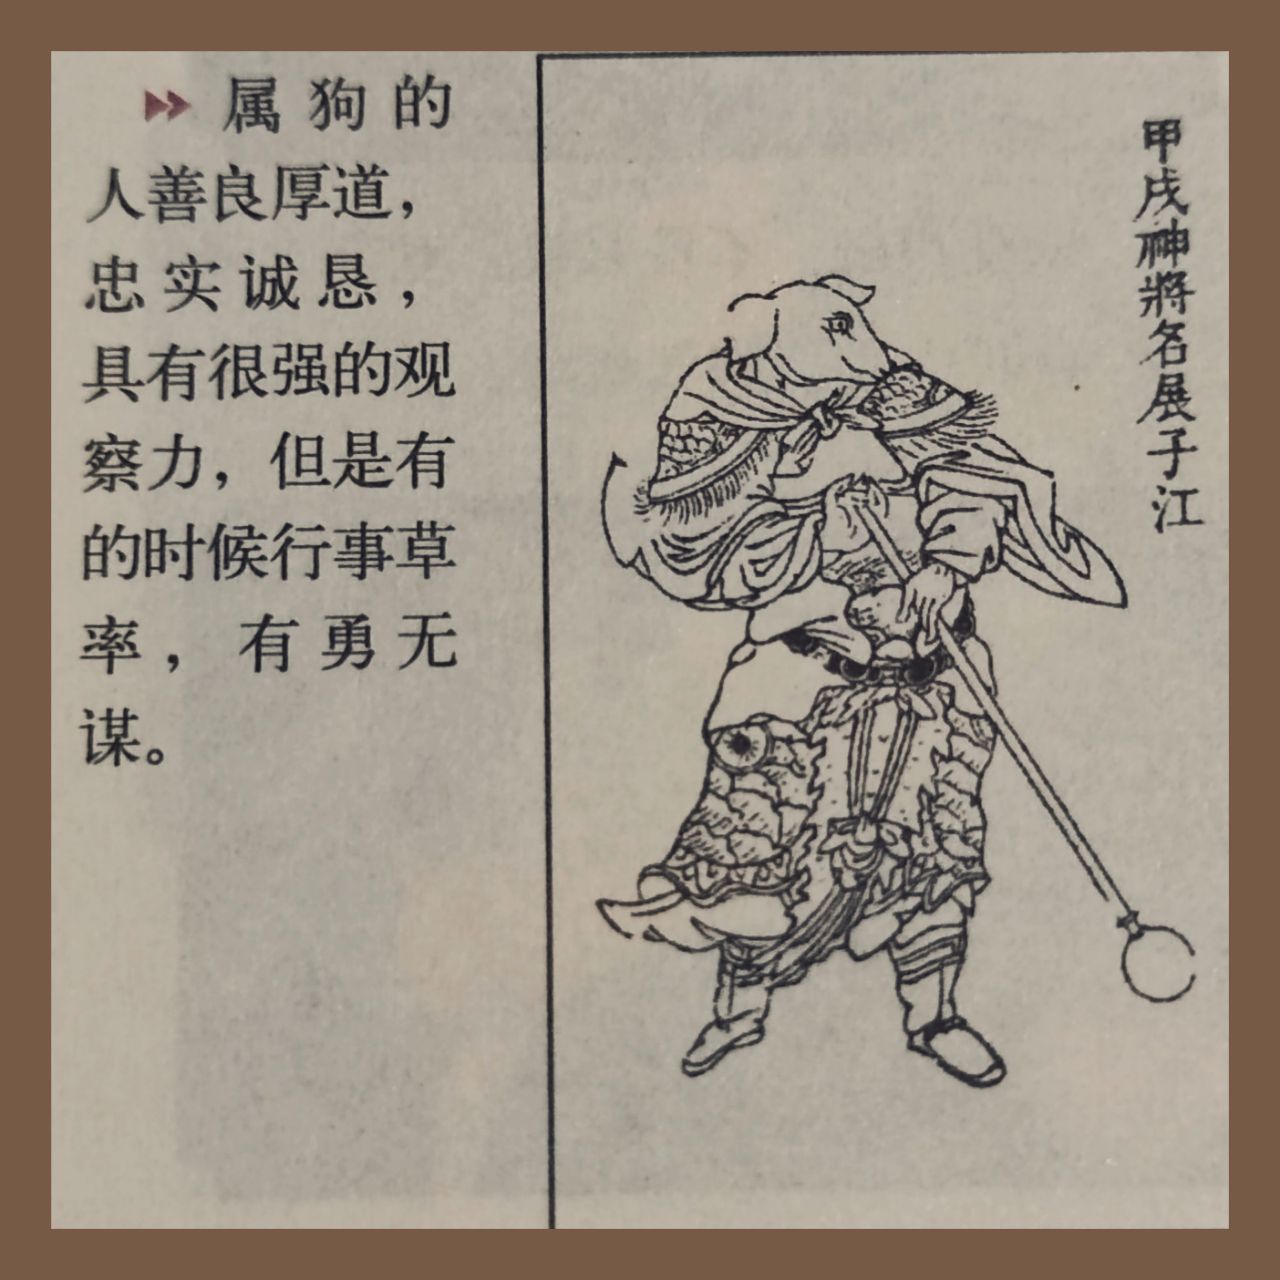 属狗的
人善良厚道，
忠实诚恳，
具有很强的观
察力，但是有
的时候行事草
率，有勇无
谋。
甲戌神將名展子江